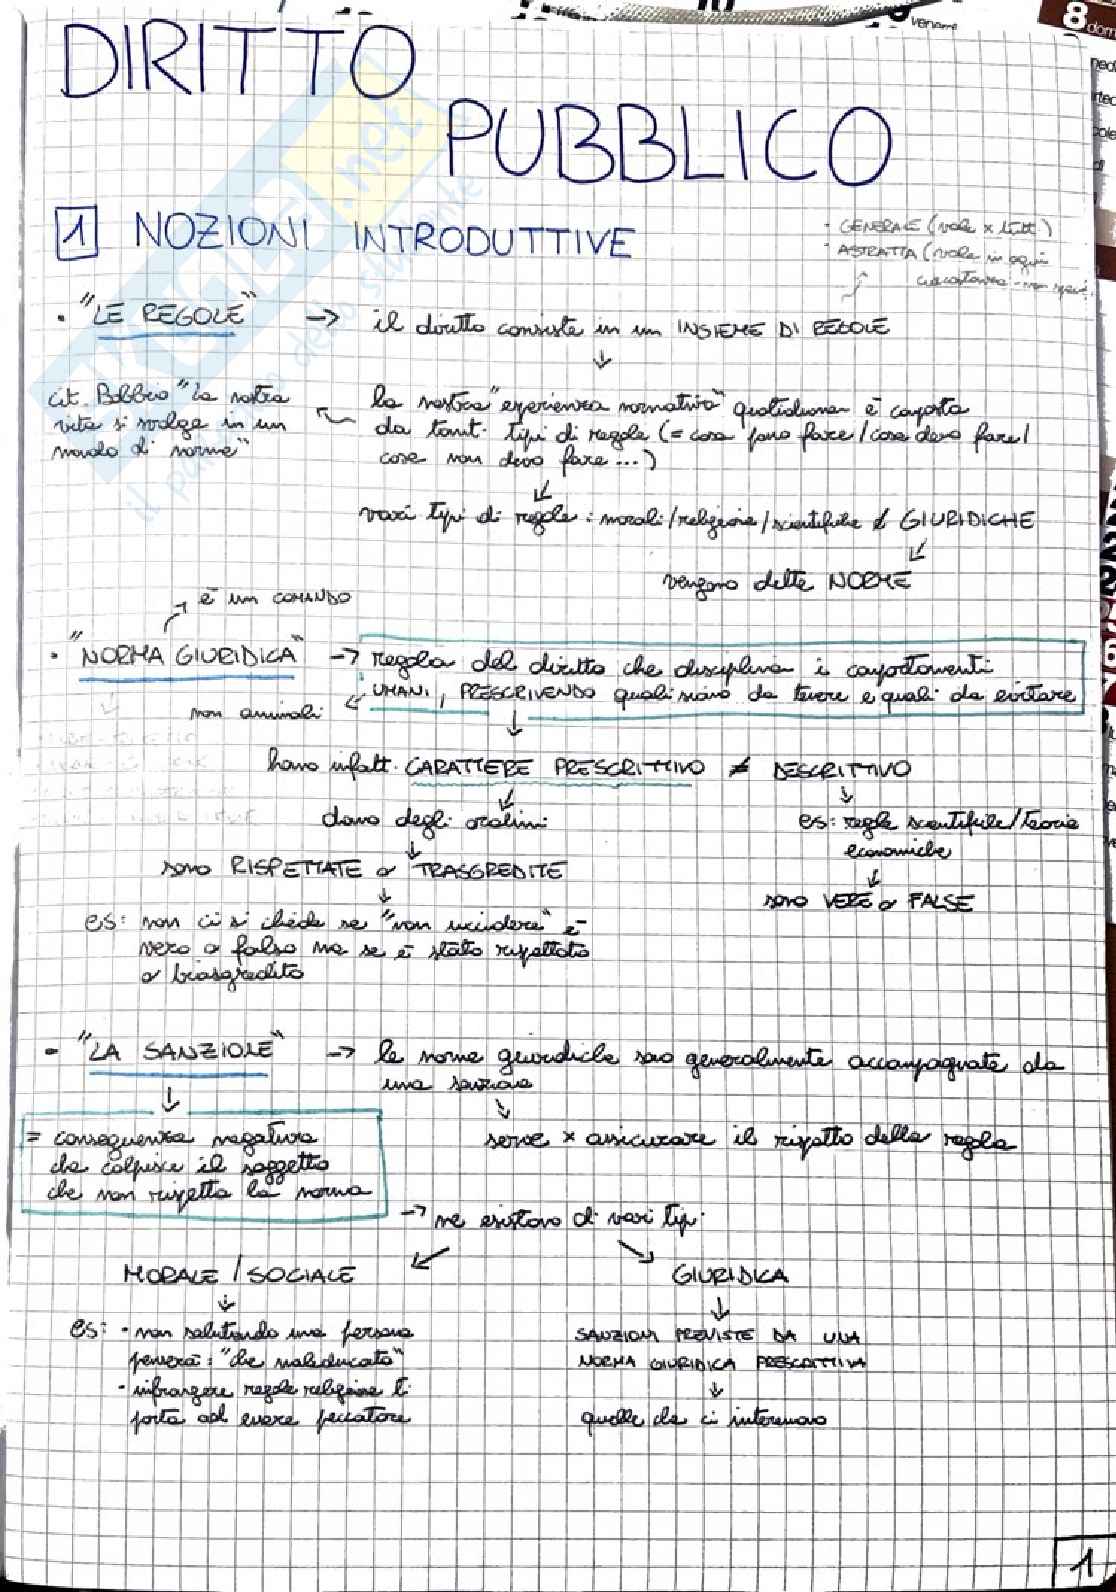 DIRITTO
PUBBLICO
1 NOZIONI INTRODUTTIVE
- GENERALE (vale x tutti)
- ASTRATTA (vale in ogni
circostanza - non spec.
• "LE REGOLE" → il diritto consiste in un INSIEME DI REGOLE
cit. Bobbio "La nostra
vita si svolge in un
mondo di norme"
la nostra "esperienza normativa" quotidiana è composta
da tanti tipi di regole (= cosa posso fare / cosa devo fare /
cosa non devo fare ...)
vari tipi di regole: morali/religiose/scientifiche e GIURIDICHE
vengono dette NORME
è un COMANDO
• "NORMA GIURIDICA" → regola del diritto che disciplina i comportamenti
UMANI, PRESCRIVENDO quali siano da tenere e quali da evitare
non animali
hanno infatti CARATTERE PRESCRITTIVO ≠ DESCRITTIVO
danno degli ordini
es: regole scientifiche/teorie
economiche
sono RISPETTATE o TRASGREDITE
sono VERE o FALSE
es: non ci si chiede se "non uccidere" è
vero o falso ma se è stato rispettato
o trasgredito
• "LA SANZIONE" → le norme giuridiche sono generalmente accompagnate da
una sanzione
= conseguenza negativa
che colpisce il soggetto
che non rispetta la norma
serve x assicurare il rispetto della regola
→ ne esistono di vari tipi
MORALE / SOCIALE
GIURIDICA
es: - non salutando una persona
penserà: "che maleducato"
- infrangere regole religiose ti
porta ad essere peccatore
SANZIONI PREVISTE DA UNA
NORMA GIURIDICA PRESCRITTIVA
quelle che ci interessano
1
8
dom
venerdì
SKUOLA.net
il paradiso dello studente